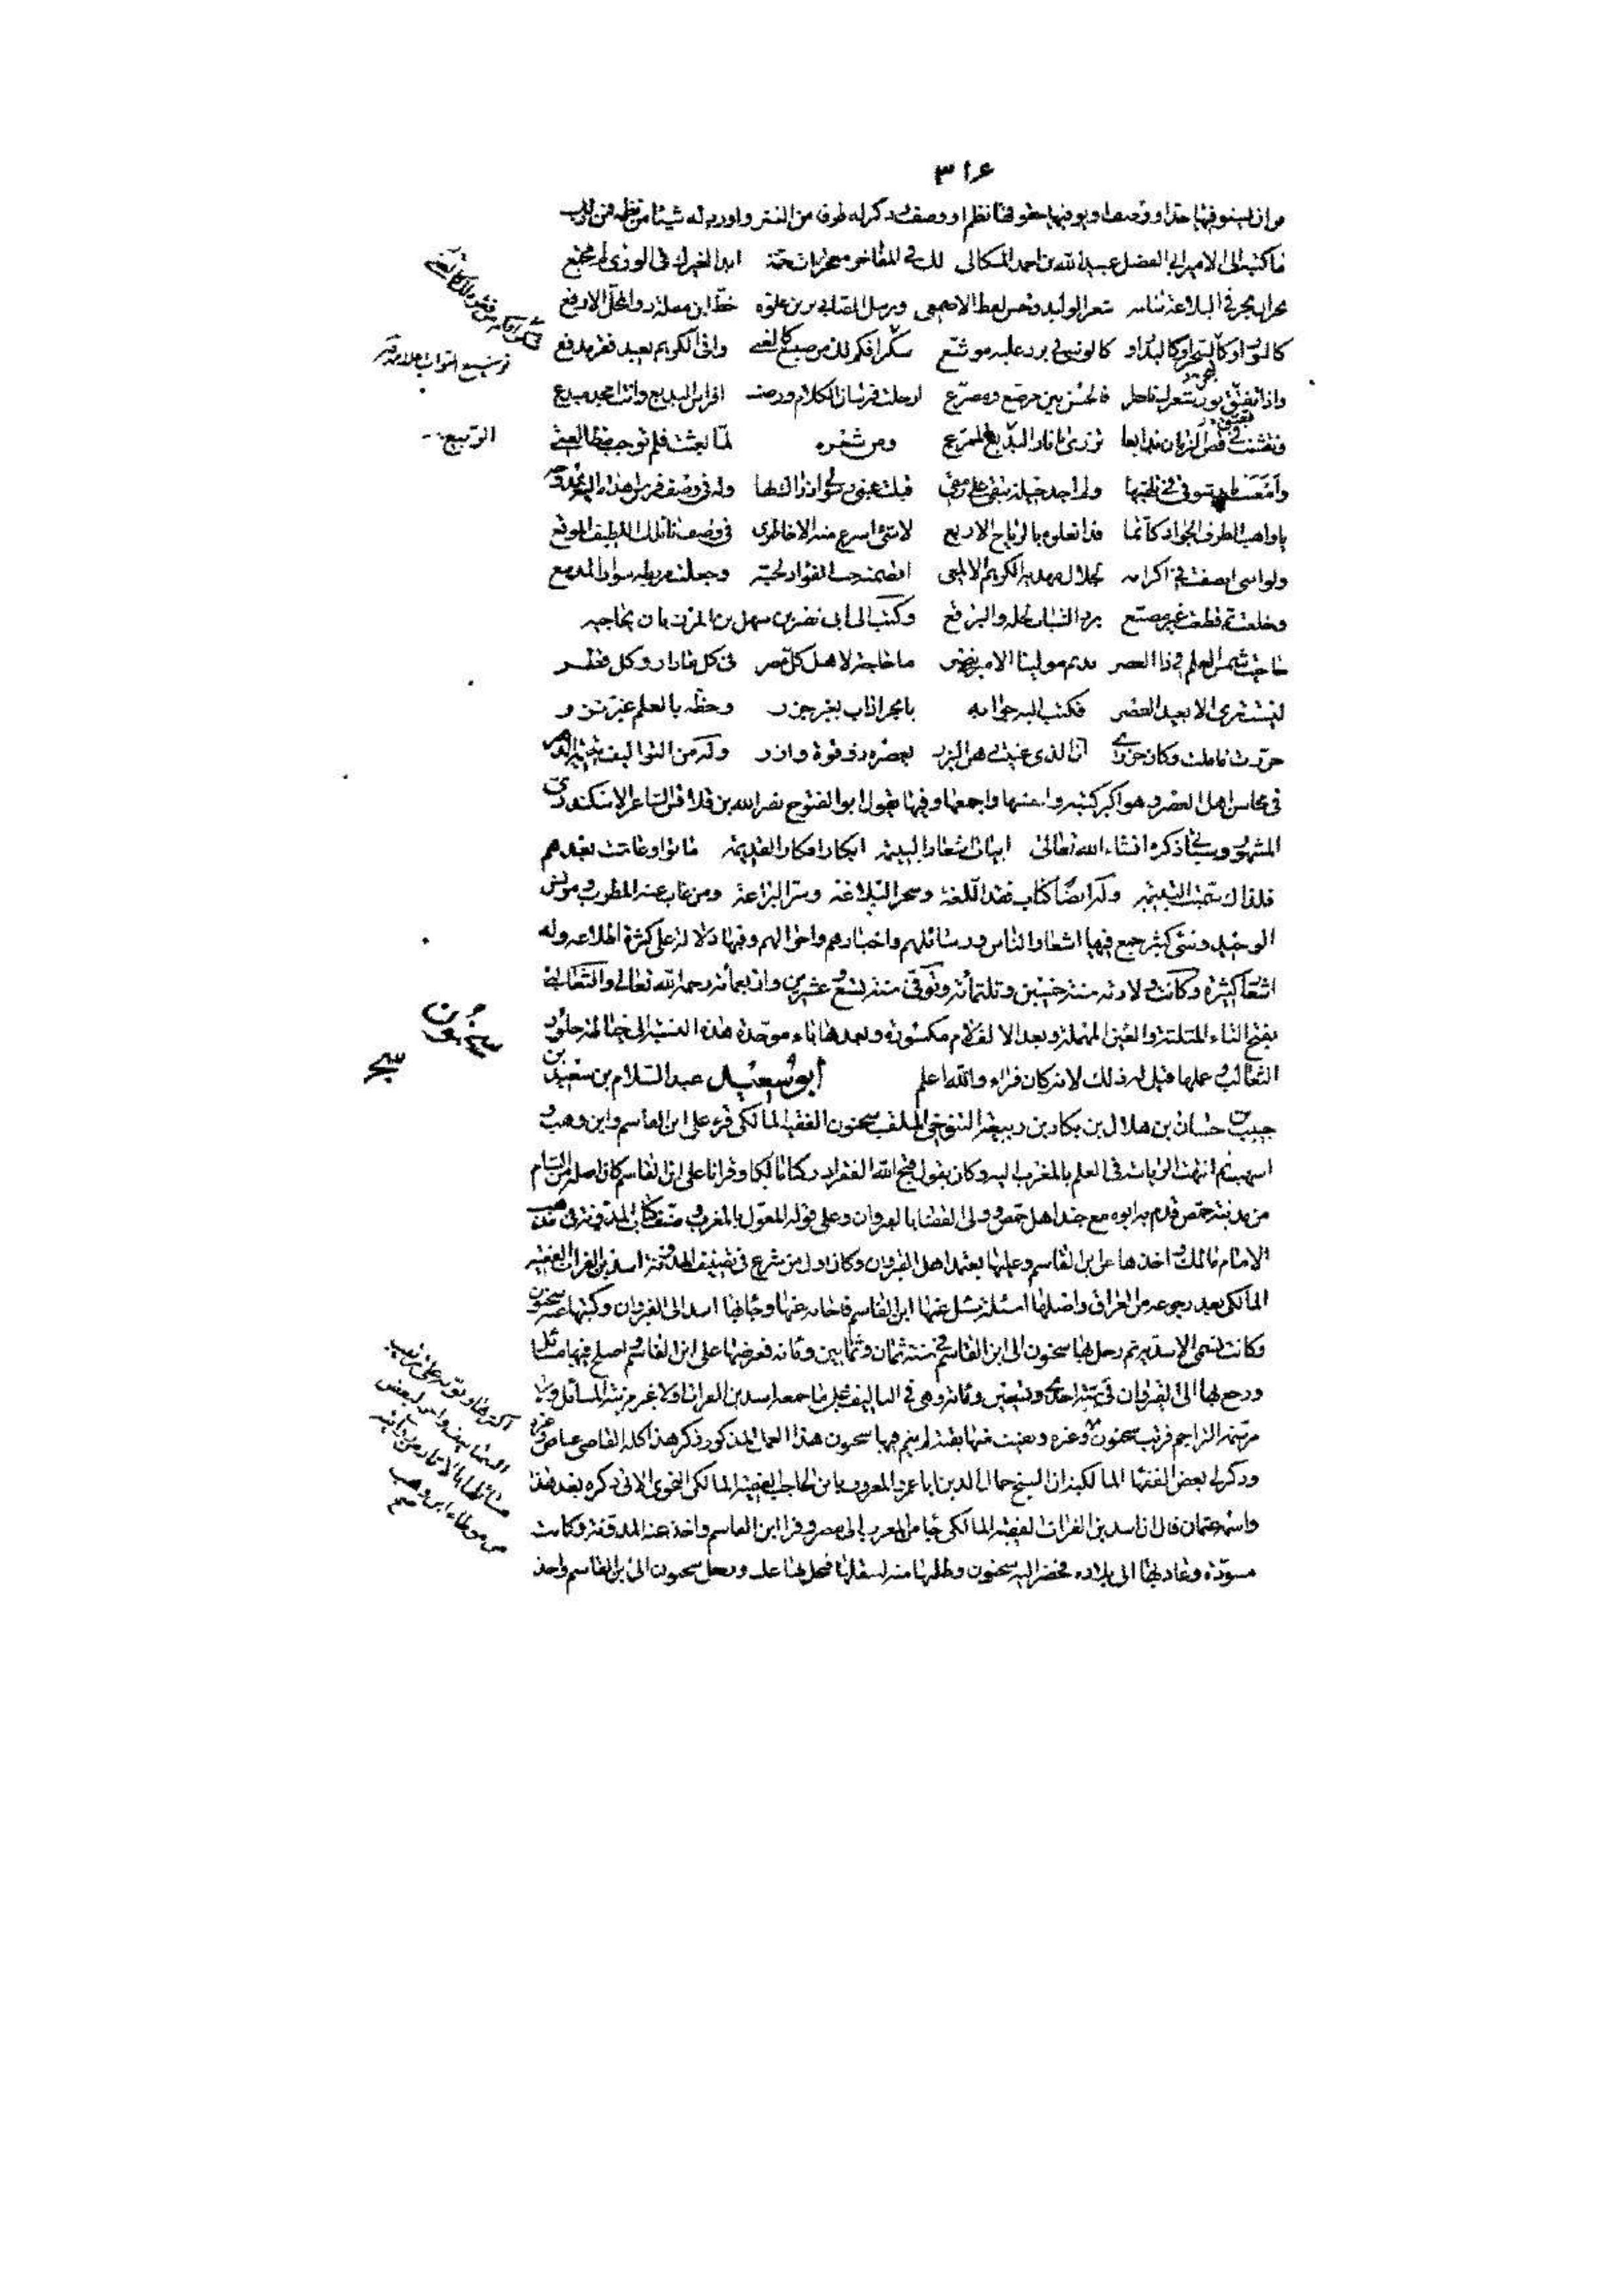 ٣١٤
من ان يستوفيها حد او وصف او يوفيها حقوقها نظم او وصف ذكر له طرف من النثر واورد له شيئا من نظمه فمن ذلك
ما كتبه الى الامير ابي الفضل عبيد الله بن احمد الميكالي لك في المفاخر معجزات جمة ابدا لغيرك في الورى لم تجمع
بحران بحر في البلاغة شابه شعر الوليد وحسن لفظ الاصمعي وترسل الصابي يزين علوه خط ابن مقلة ذو المحل الارفع
كالنور او كالسحر او كالبدر او كالوشي في برد عليه موشع شكرا فكم لك من صنيع كالغنى وافى الكريم بعيد فقر مدقع
واذا تفتق نور شعرك ناضرا فالحسن بين مرصع ومصرع ارجلت فرسان الكلام ورضت افراس البديع وانت امجد مبدع
ونقشت في فص الزمان بدايعا تزري باثار الربيع الممرع ومن شعره لما بعثت فلم توجب مطالعتي
وامعنت نار شوقي في تلهبها ولم اجد حيلة تبقي على رمقي قبلت عيني رسولي اذ رآك بها وله في وصف فرس اهداه اليه ممدوحه
يا واهب الطرف الجواد كانما قد انعلوه بالرياح الاربع لا شئ اسرع منه الا خاطري في وصف نائلك اللطيف الموقع
ولو انني انصفت في اكرامه لجلال مهديه الكريم الالمعي اقضمته حب الفؤاد لحبه وجعلت مربطه سواد المدمع
وخلعت ثم قطعت غير مضيع برد الشباب لجله والبرقع وكتب الى ابي نصر بن سهل بن المرزبان يحاجيه
حاجيت شمس العلم في ذا العصر نديم مولينا الامير نصر ما حاجة لاهل كل مصر في كل ما دار وكل قطر
ليست ترى الا بعيد العصر فكتب اليه جوابه يا بحر اداب بغير جزر وحظه بالعلم غير نزر
حزرت ما قلت وكان حزري ان الذي عنيت دهن البزر يعصره ذو قوة وازر وله من التواليف يتيمة الدهر
في محاسن اهل العصر وهو اكبر كتبه واحسنها واجمعها وفيها يقول ابو الفتوح نصر الله بن قلاقس الشاعر الاسكندري
المشهور وسيأتي ذكره انشاء الله تعالى ابيات اشعار اليتيمة ابكار افكار القديمة ماتوا وعاشت بعدهم
فلذاك سميت اليتيمة وله ايضا كتاب فقه اللغة وسحر البلاغة وسر البراعة ومن غاب عنه المطرب ومونس
الوحيد وشئ كثير جمع فيها اشعار الناس ورسائلهم واخبارهم واحوالهم وفيها دلالة على كثرة اطلاعه وله
اشعار كثيرة وكانت ولادته سنة خمسين وثلثمائة وتوفي سنة تسع وعشرين واربعمائة رحمه الله تعالى والثعالبي
بفتح الثاء المثلثة والعين المهملة وبعد الالف لام مكسورة وبعدها باء موحدة هذه النسبة الى خياطة جلود
الثعالب وعملها قيل له ذلك لانه كان فراء والله اعلم ابو سعيد عبد السلام بن سعيد بن
حبيب بن حسان بن هلال بن بكار بن ربيعة التنوخي الملقب سحنون الفقيه المالكي قرء على ابن القاسم وابن وهب و
اشهب ثم انتهت الرياسة في العلم بالمغرب اليه وكان يقول قبح الله الفقر ادركنا مالكا وقرانا على ابن القاسم كان اصله من الشام
من مدينة حمص قدم به ابوه مع جند اهل حمص وولى القضاء بالقيروان وعلى قوله المعول بالمغرب وصنف كتاب المدونة في مذهب
الامام مالك واخذها عن ابن القاسم وعليها يعتمد اهل القيروان وكان اول من شرع في تصنيف المدونة اسد بن الفرات الفقيه
المالكي بعد رجوعه من العراق واصلها اسئلة سئل عنها ابن القاسم فاجاب عنها وجاء بها اسد الى القيروان وكتبها عنه سحنون
وكانت تسمى الاسدية ثم رحل بها سحنون الى ابن القاسم في سنة ثمان وثمانين ومائة فعرضها على ابن القاسم واصلح فيها مسائل
ورجع بها الى القيروان في سنة احدى وتسعين ومائة وهي في التاليف على ما جمعه اسد بن الفرات اولا غير مرتبة المسائل ولا
مرتسمة التراجم فرتب سحنون اكثرها وبقيت منها بقية لم يتم فيها سحنون هذا العمل المذكور ذكر هذا كله القاضي عياض وغيره
وذكر لي بعض الفقهاء المالكية ان الشيخ جمال الدين ابا عمرو المعروف بابن الحاجب الفقيه المالكي النحوي الاتي ذكره بعد هذا
واسمه عثمان قال ان اسد بن الفرات الفقيه المالكي جاء من المغرب الى مصر وقرا على ابن القاسم واخذ عنه المدونة وكانت
مسودة وعاد بها الى بلاده فحضر اليه سحنون وطلبها منه لينقلها فبخل بها عليه ورحل سحنون الى ابن القاسم واخذ
الربيع
سحنون